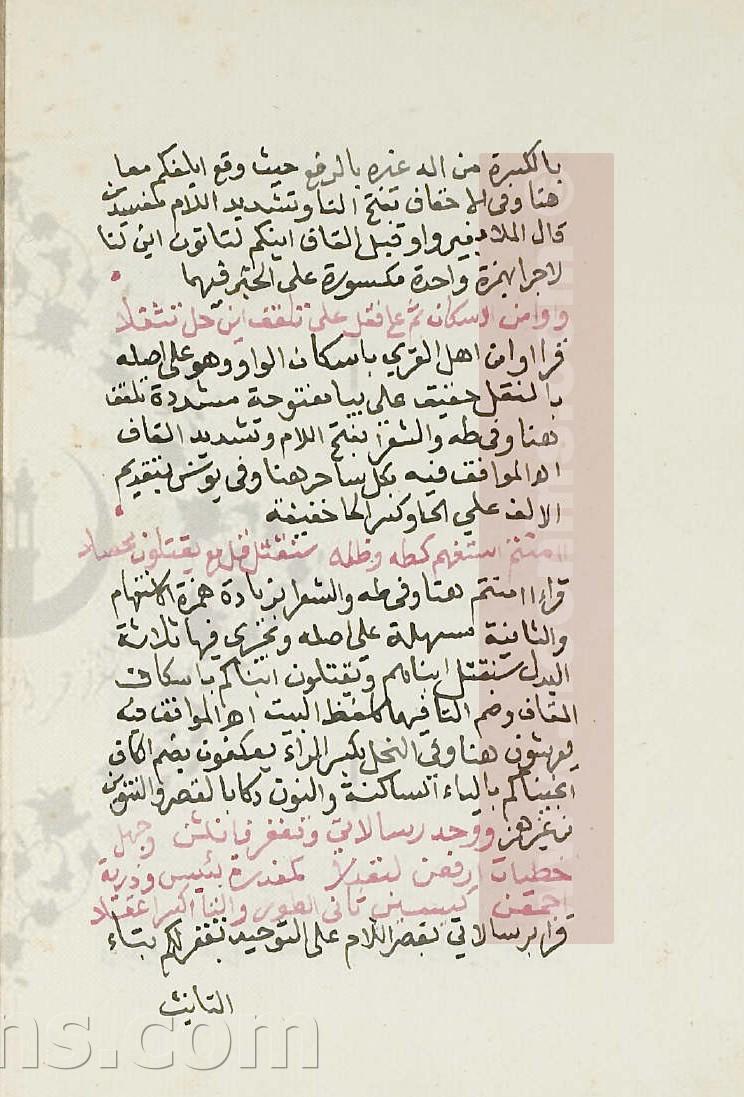 بالكسرة من اله غيره بالرفع حيث وقع ابلغكم معا
هنا وفي الاحقاف بفتح البا وتشديد اللام مفسدين
قال الملا بغير واو قبل القاف اينكم لتاتون اين لنا
لاجرا بهمزة واحدة مكسورة على الخبر فيهما
واو امن الاسكان ثم انقل على تلقف اين حل تثقلا
قرا او امن اهل القري باسكان الواو وهو على اصله
بالنقل حقيق على بيا مفتوحة مشددة تلقف
هنا وفي طه والشعرا بفتح اللام وتشديد القاف
اه الموافق فيه بكل ساحر هنا وفي يونس بتقديم
الالف علي الحا وكسر الحا خفيفة
ءامنتم استفهم كطه وظله سنقتل قل مع يقتلون
قراءاامنتم هنا وفي طه والشعرا بزيادة همزة الاستفهام
والثانية مسهلة على اصله وتجزي فيها ثلاثة
البدل سنقتل ابناهم ويقتلون ابناكم باسكان
القاف وضم التا فيهما كلفظ البيت اه الموافق فيه
يعرشون هنا وفي النحل بكسر الراء يعكفون بضم الكاف
انجيناكم بالياء الساكنة والنون دكا بالقصر والتنوين
من غير همز ووحد رسالاتي وتغفر فانثن
خطيات ارفعن معذرة بئيس وذرية
اجمعن ثاني الطور
قرا برسالاتي بقصر اللام على التوحيد تغفر لكم بتاء
التانيث
ns.com